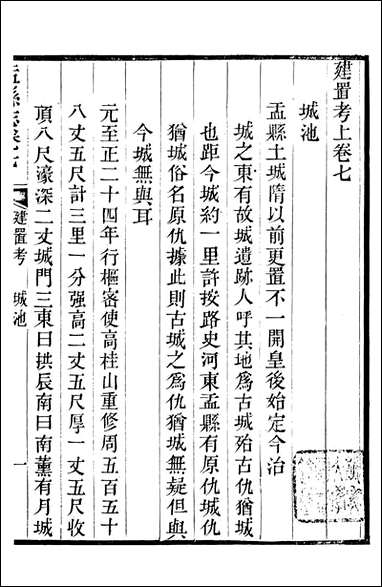 建置考上卷七
城池
盂縣土城隋以前更置不一開皇後始定今治
城之東有故城遺跡人呼其地爲古城殆古仇猶城
也距今城約一里許按路史河東盂縣有原仇城仇
猶城俗名原仇據此則古城之爲仇猶城無疑但與
今城無與耳
元至正二十四年行樞密使高桂山重修周五百五十
八丈五尺計三里一分强高二丈五尺厚一丈五尺收
頂八尺濠深二丈城門三東曰拱辰南曰南薰有月城
盂縣志卷七
建置考
城池
一